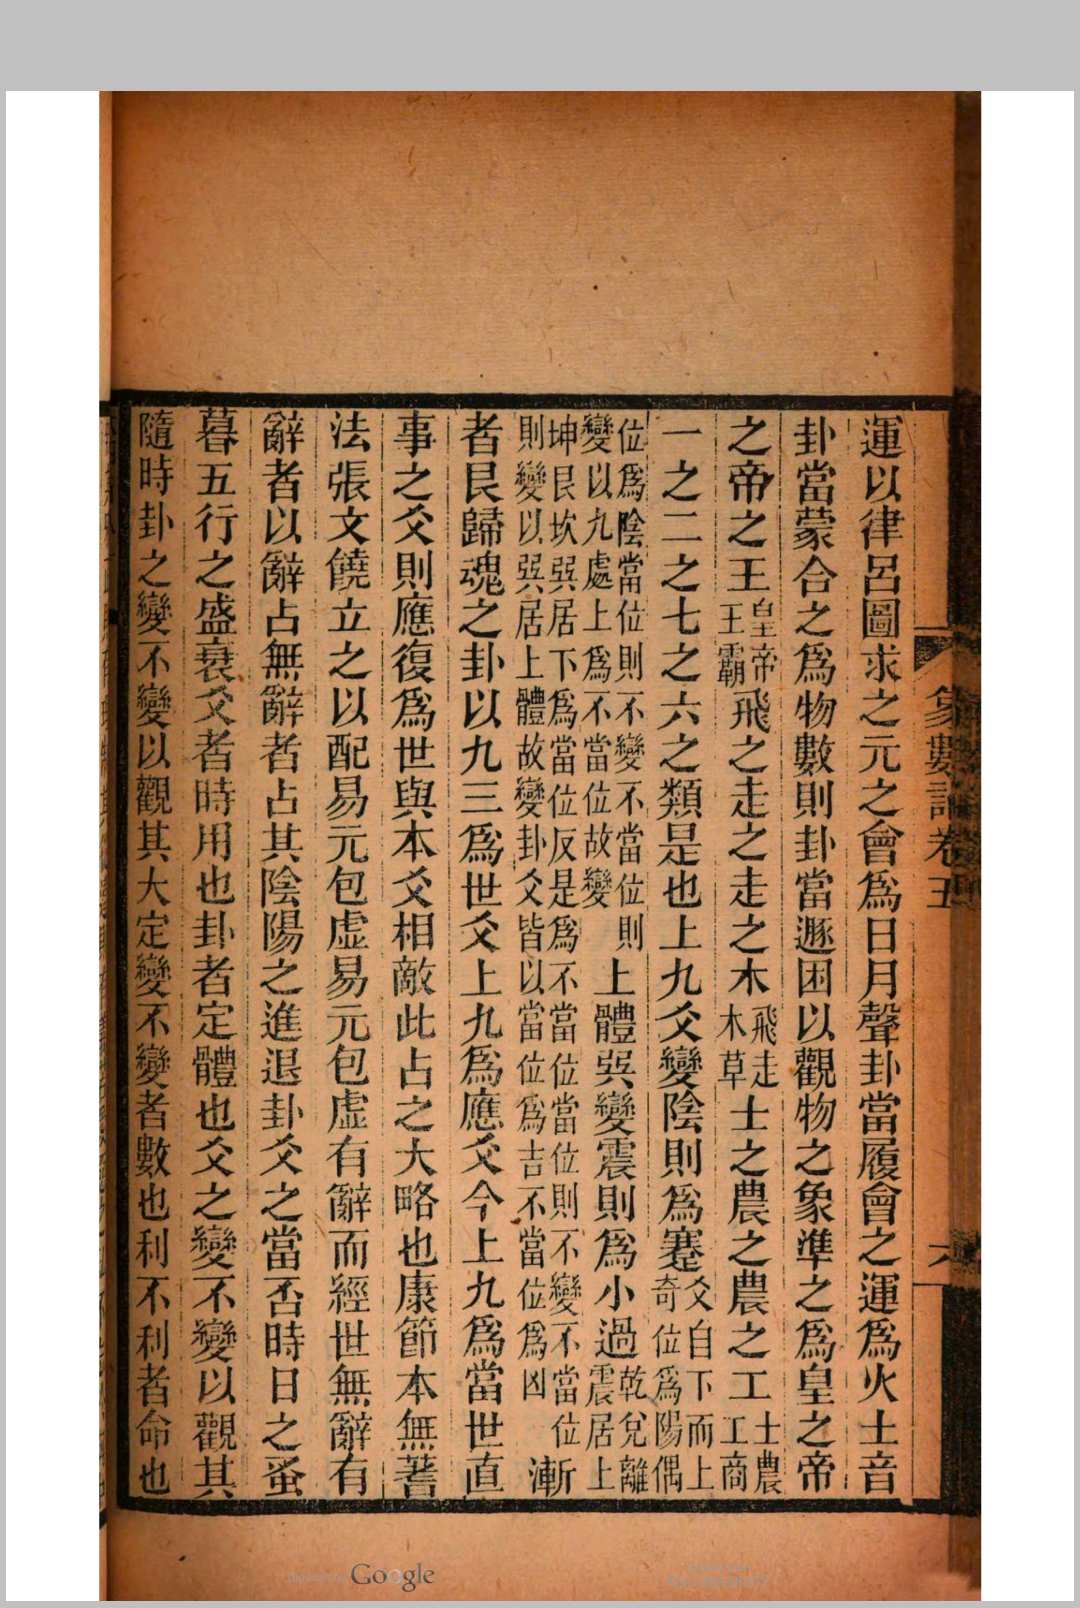 象數論卷五
六
運以律呂圖求之元之會為日月聲卦當履會之運為火土音
卦當蒙合之為物數則卦當遯困以觀物之象準之為皇之帝
之帝之王皇帝王霸飛之走之走之木飛走木草士之農之農之工士農工商
一之二之七之六之類是也上九爻變陰則為蹇爻自下而上奇位為陽偶
位為陰當位則不變不當位則變以九處上為不當位故變上體巽變震則為小過乾兌離震居上
坤艮坎巽居下為當位反是為不當位當位則不變不當位則變以巽居上體故變卦爻皆以當位為吉不當位為凶漸
者艮歸魂之卦以九三為世爻上九為應爻今上九為當世直
事之爻則應復為世與本爻相敵此占之大略也康節本無蓍
法張文饒立之以配易元包虛易元包虛有辭而經世無辭有
辭者以辭占無辭者占其陰陽之進退卦爻之當否時日之蚤
暮五行之盛衰爻者時用也卦者定體也爻之變不變以觀其
隨時卦之變不變以觀其大定變不變者數也利不利者命也
Google